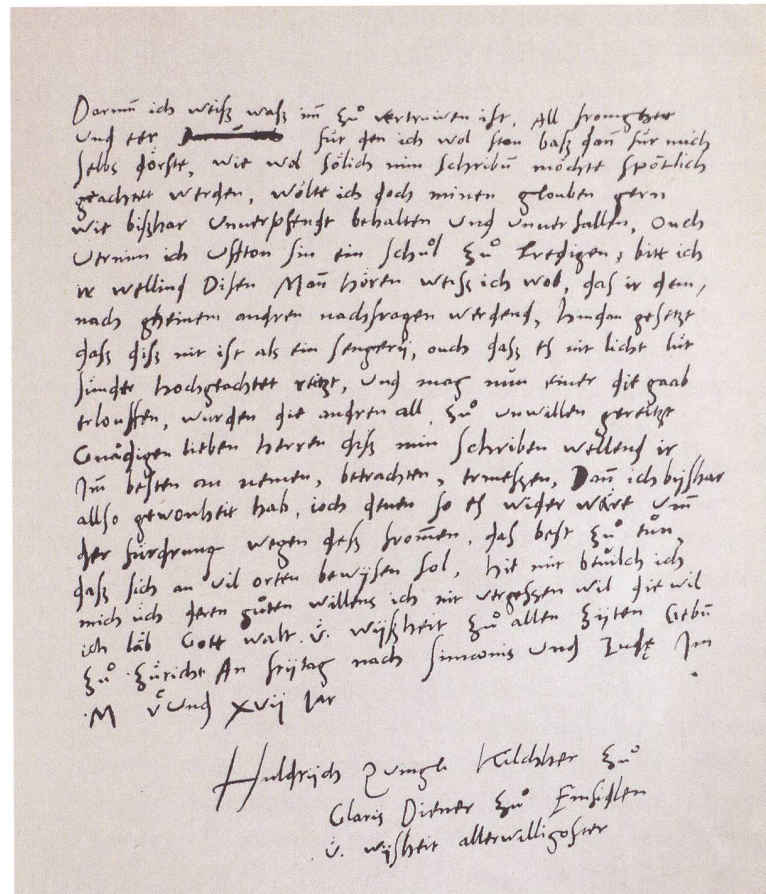 Darum̄ ich weiß waß im̄ zů vertruwen ist, All fromgkeit
und eer für den ich wol ston baß dañ für mich
selbs dörste, wie wol sölich min schribū möchte spötlich
geachtet werden, wölte ich doch minen glouben gern
wie bißhar unverpfendt behalten und unverfallen, Ouch
vernim ich ufston sin ein schůl zů predigen, bitt ich
ir wellind disen Mañ hören weiß ich wol, das ir dem,
nach gheinem andren nachfragen werdend, hindan gesetzt
daß diß nit ist als ein sengery, ouch daß es nit licht lüt
sunder hochgeachtet reitzt, und mag nun einer die gaab
erlouffen, wurden die andren all zů unwillen gereitzt
Gnädigen lieben herren diß min schriben wellend ir
Im besten an nemen, betrachten, ermessen, Dañ ich byßhar
allso gewonheit hab, ioch denen so es wider wäre um̄
der fürdrung wegen deß from̄en, das best zů tůn,
daß sich an vil orten bewysen sol, hie mit bevilch ich
mich üch deren gůten willens ich nit vergessen wil die wil
ich läb Gott walt ü. wyßheit zů allen zyten Gebū
zů Zürich An frytag nach Simonis und Iude Im
M v͑ und xvij Jar
Huldrijch Zwingli kilchher zů
Glaris Diener zů Einsidlen
ü. wyßheit allerwilligoster